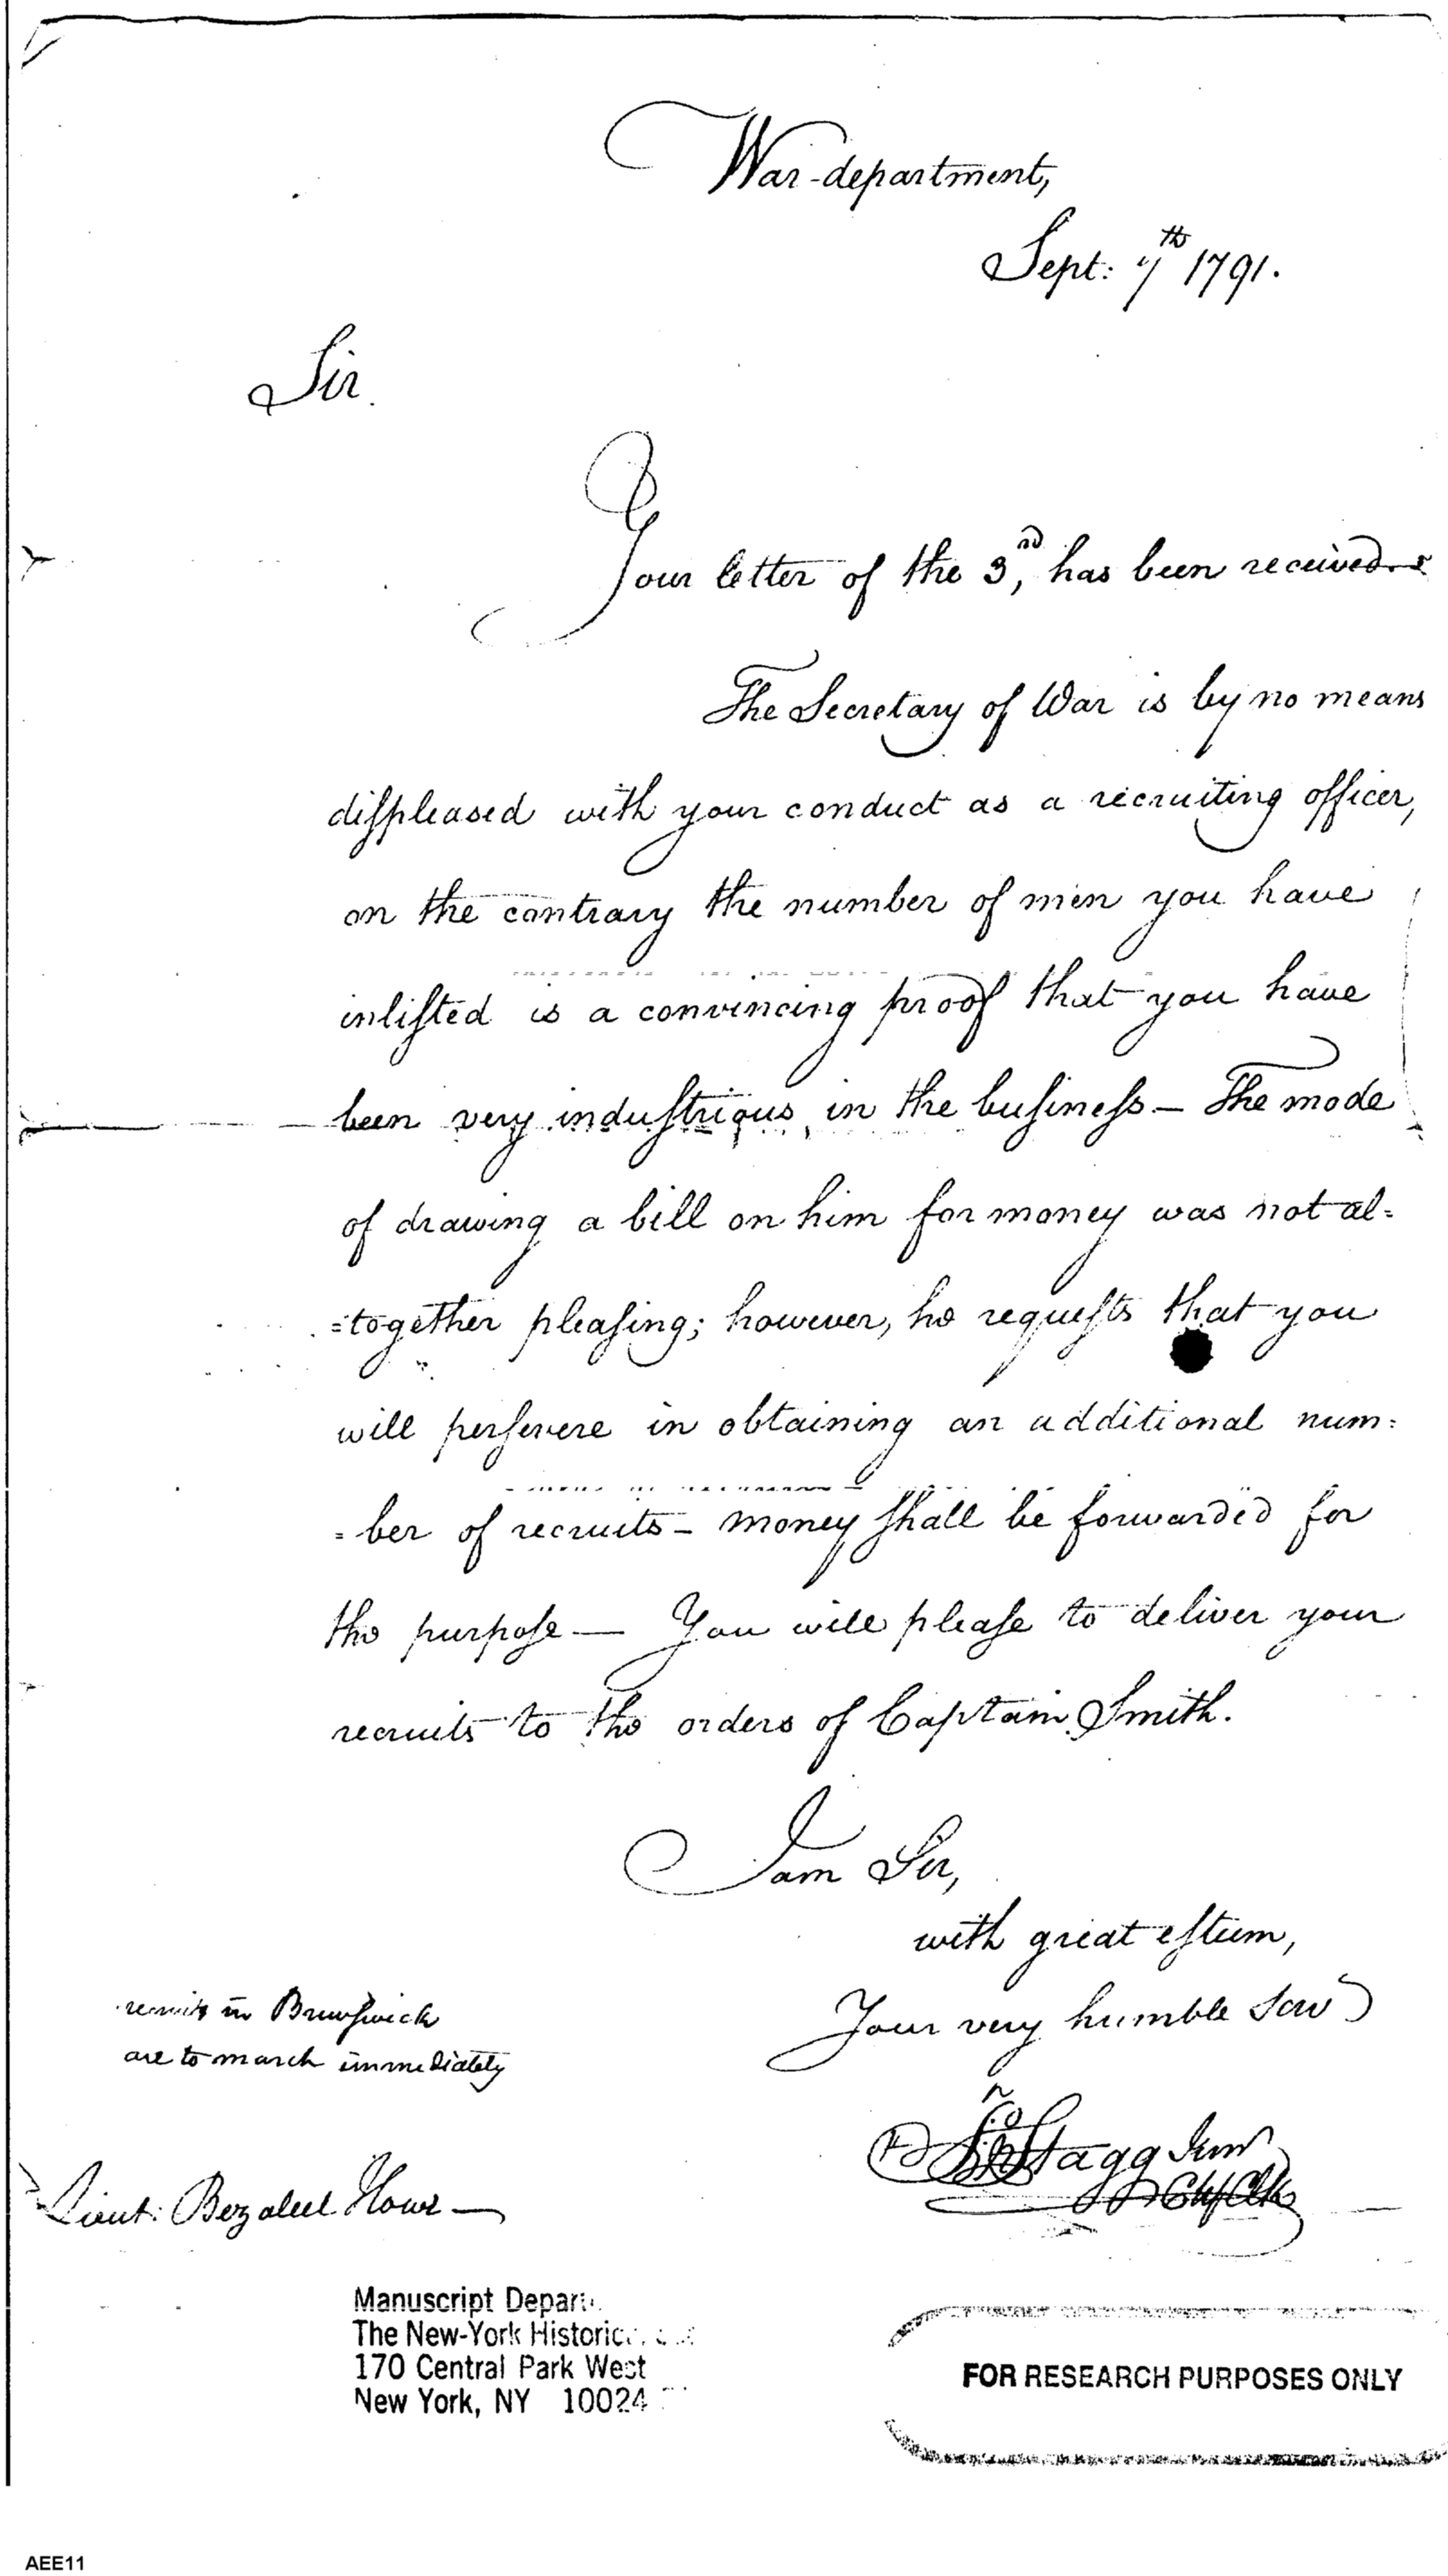 War-department,
Sept: 7th 1791.
Sir.
Your letter of the 3rd, has been received.
The Secretary of War is by no means
diſpleased with your conduct as a recruiting officer,
on the contrary the number of men you have
inliſted is a convincing proof that you have
been very induſtrious in the buſineſs — The mode
of drawing a bill on him for money was not al=
=together pleaſing; however, he requeſts that you
will perſevere in obtaining an additional num=
=ber of recruits — money ſhall be forwarded for
the purpoſe — You will pleaſe to deliver your
recruits to the orders of Captain Smith.
I am Sir,
with great eſteem,
Your very humble Serv
recruits in Brunſwick
are to march immediately
Jno Stagg Junr
Chf Clk
Lieut: Bezaleel Howe —
Manuscript Depart
The New-York Historic
170 Central Park West
New York, NY 10024
FOR RESEARCH PURPOSES ONLY
AEE11